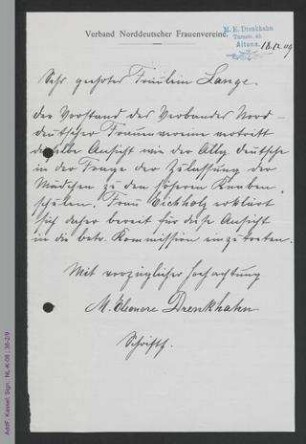 Verband Norddeutscher Frauenvereine
M. E. Drenkhahn
Altona, 18.12.09
Sehr geehrtes Fräulein Lange.
der Vorstand des Verbandes Nord-
deutscher Frauenvereine vertritt
dieselbe Ansicht wie der Allg. deutsche
in der Frage der Zulassung der
Mädchen zu den höheren Knaben-
schulen. Frau Eichholz erklärt
sich daher bereit für diese Ansicht
in die betr. Kommission einzutreten.
Mit vorzüglicher Hochachtung
M. Eleonore Drenkhahn
Schriftf.
AddF, Kassel, Sign.: NL-K-08 ; 36-2/9